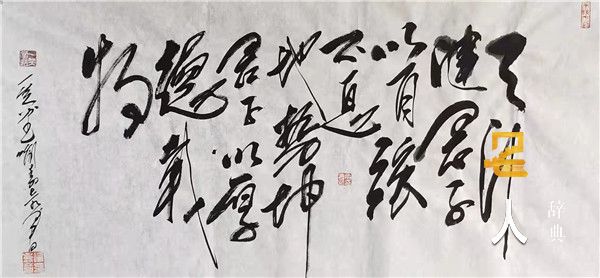 天行
健君子
以自強
不息
地勢坤
君子以厚
德載
物
人
辞典